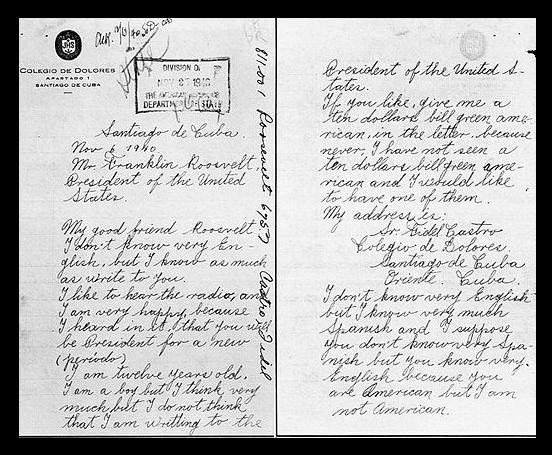 COLEGIO DE DOLORES
APARTADO 1
SANTIAGO DE CUBA
DIVISION OF
NOV 27 1940
THE AMERICAN REPUBLICS
DEPARTMENT OF STATE
Santiago de Cuba.
Nov 6 1940.
Mr Franklin Roosvelt
President of the United
States.
My good friend Roosvelt
I don't know very En-
glish, but I know as much
as write to you.
I like to hear the radio, and
I am very happy, because
I heard in it, that you will
be President for a new
(periodo)
I am twelve years old.
I am a boy but I think very
much, but I do not think
that I am writting to the
811.001 Roosevelt 6757 Castro, Fidel
President of the United S-
tates.
If you like, give me a
ten dollars bill green ame-
rican, in the letter, because
never, I have not seen a
ten dollars bill green ame-
rican and I would like
to have one of them.
My address is:
Sr. Fidel Castro
Colegio de Dolores.
Santiago de Cuba
Oriente. Cuba.
I don't know very English
but I know very much
Spanish and I suppose
you don't know very Spa-
nish but you know very
English because you
are American but I am
not American.